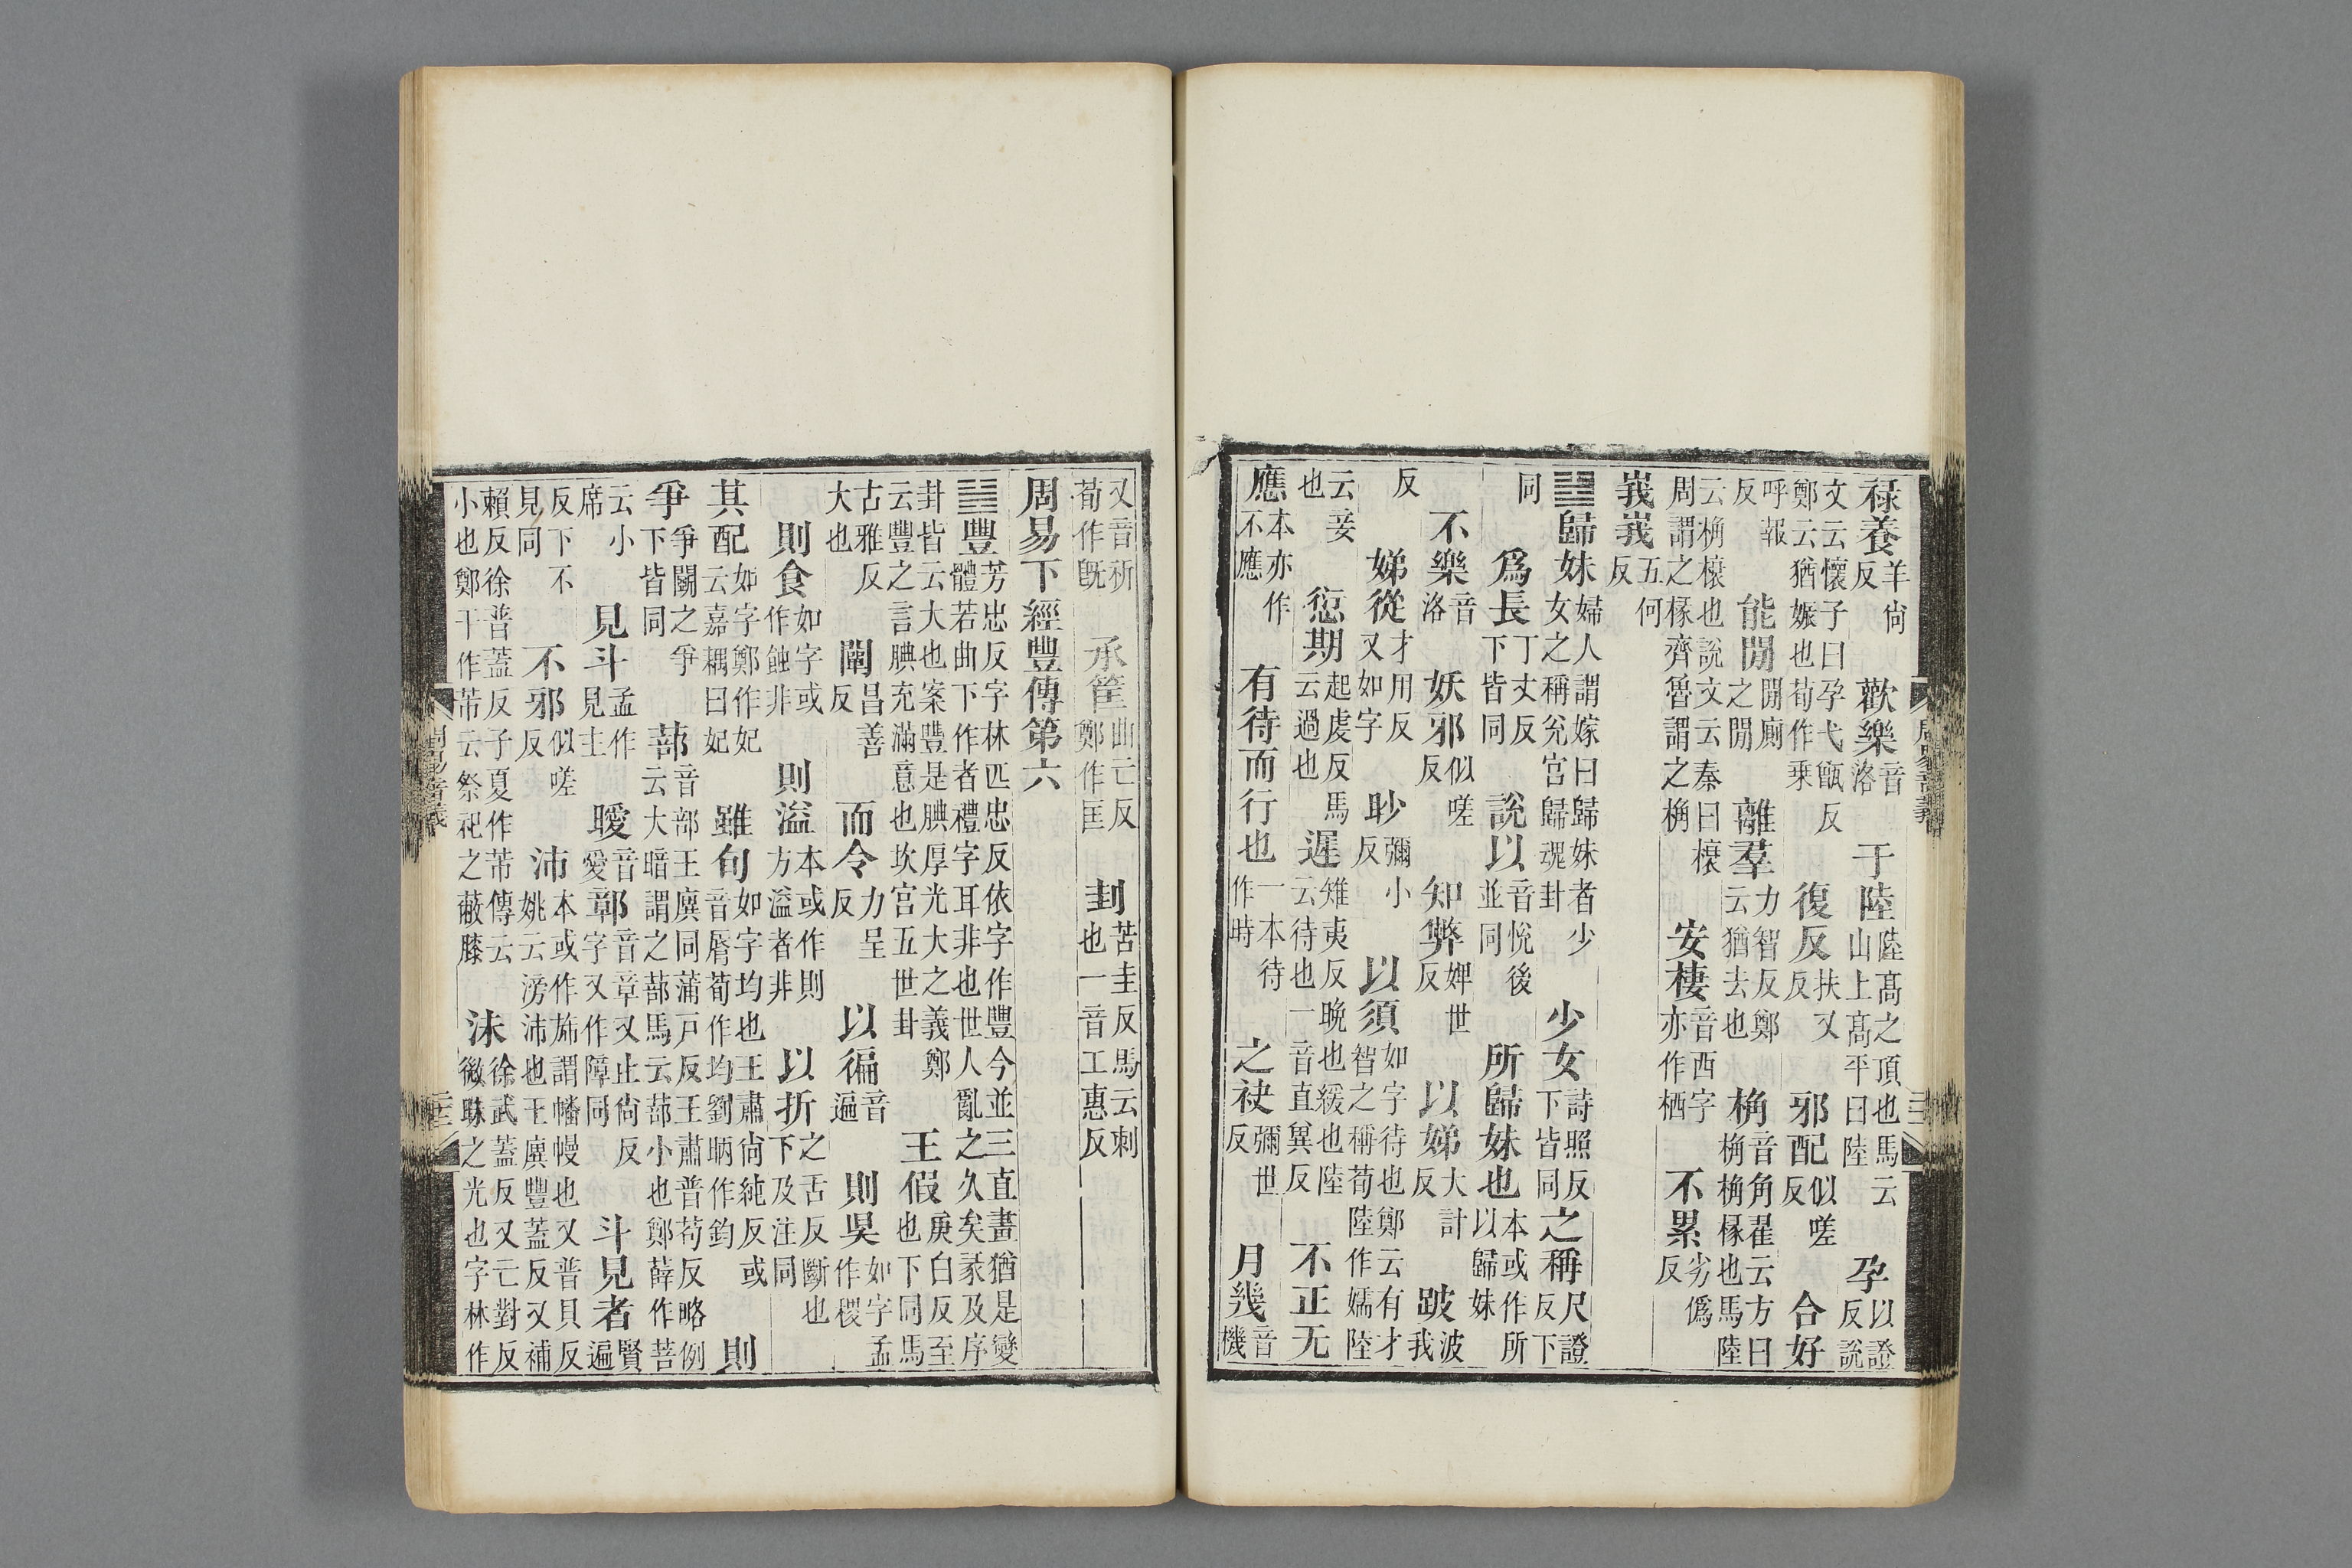 祿養羊尚反 歡樂音洛 于陸陸髙之頂也馬云山上髙平曰陸 孕以證反說
文云懷子曰孕弋甑反鄭云猶娠也荀作乘 復反扶又反 邪配似嗟反 合好
呼報反 能閒閒廁之閒 離羣力智反鄭云猶去也 桷音角翟云方曰桷桷椽也馬陸
云桷榱也說文云秦曰榱周謂之椽齊魯謂之桷 安棲音西字亦作栖 不累劣僞反
峩峩五何反
䷵歸妹婦人謂嫁曰歸妹者少女之稱兊宮歸魂卦 少女詩照反下皆同 之稱尺證反下
同 爲長丁丈反下皆同 說以音悅後並同 所歸妹也本或作所以歸妹
不樂音洛 妖邪似嗟反 知弊婢世反 以娣大計反 跛波我
反 娣從才用反又如字 眇彌小反 以須如字待也鄭云有才智之稱荀陸作嬬陸
云妾也 愆期起虔反馬云過也 遲雉夷反晩也緩也陸云待也一音直異反 不正无
應本亦作不應 有待而行也一本待作時 之袂彌世反 月幾音機
周易音義
又音祈荀作旣 承筐曲亡反鄭作匡 刲苦圭反馬云刺也一音工惠反
周易下經豐傳第六
䷶豐芳忠反字林匹忠反依字作豐今並三直畫猶是變體若曲下作者禮字耳非也世人亂之久矣彖及序
卦皆云大也案豐是腆厚光大之義鄭云豐之言腆充滿意也坎宮五世卦 王假庚白反至也下同馬
古雅反大也 闡昌善反 而令力呈反 以徧音遍 則昃如字孟作稷
則食如字或作蝕非 則溢本或作則方溢者非 以折之舌反斷也下及注同
其配如字鄭作妃云嘉耦曰妃 雖旬如字均也王肅尚純反或音脣荀作均劉昞作鈞 則
爭爭鬭之爭下皆同 蔀音部王廙同蒲戶反王肅普苟反略例云大暗謂之蔀馬云蔀小也鄭薛作菩
云小席 見斗孟作見主 曖音愛 鄣音章又止尚反字又作障同 斗見者賢遍
反下不見同 不邪似嗟反 沛本或作旆謂幡幔也又普貝反姚云滂沛也王廙豐蓋反又補
賴反徐普蓋反子夏作芾傳云小也鄭干作芾云祭祀之蔽膝 沬徐武蓋反又亡對反微昧之光也字林作